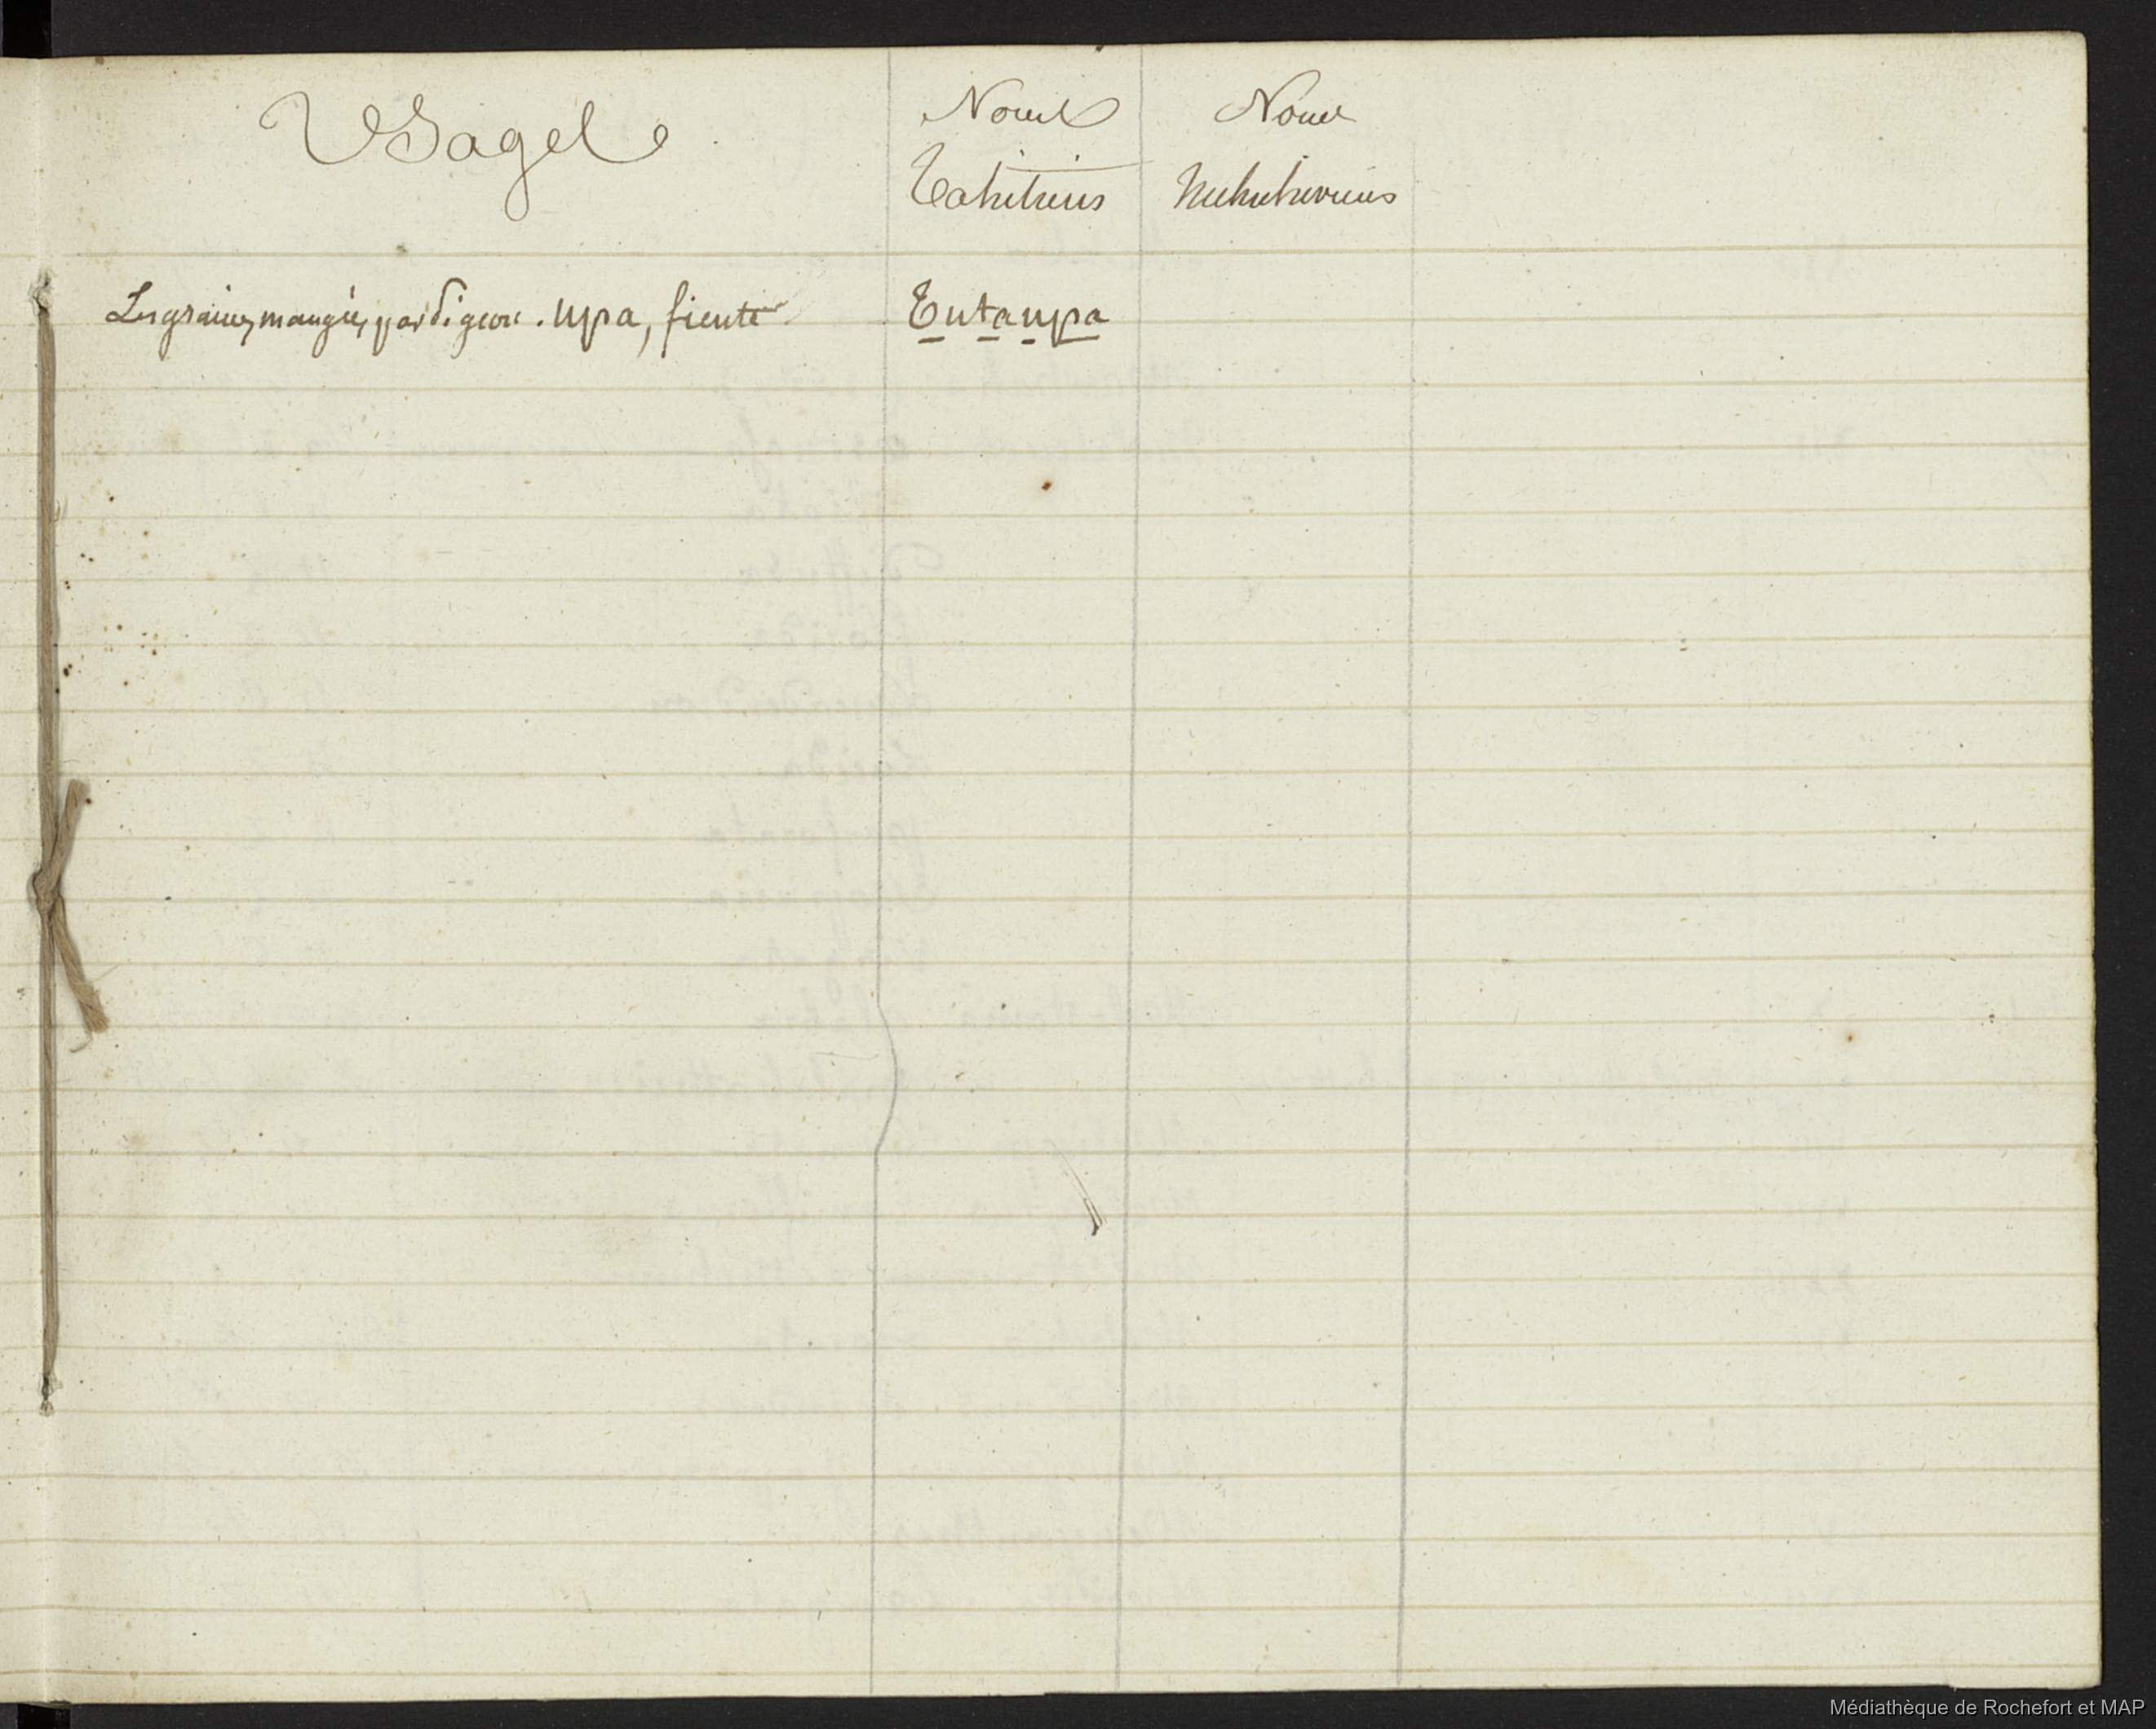 Usages
Noms
Tahitiens
Noms
Nukuhiviens
Les graines mangées par pigeon. upa, fiente
Eutaupa
Médiathèque de Rochefort et MAP